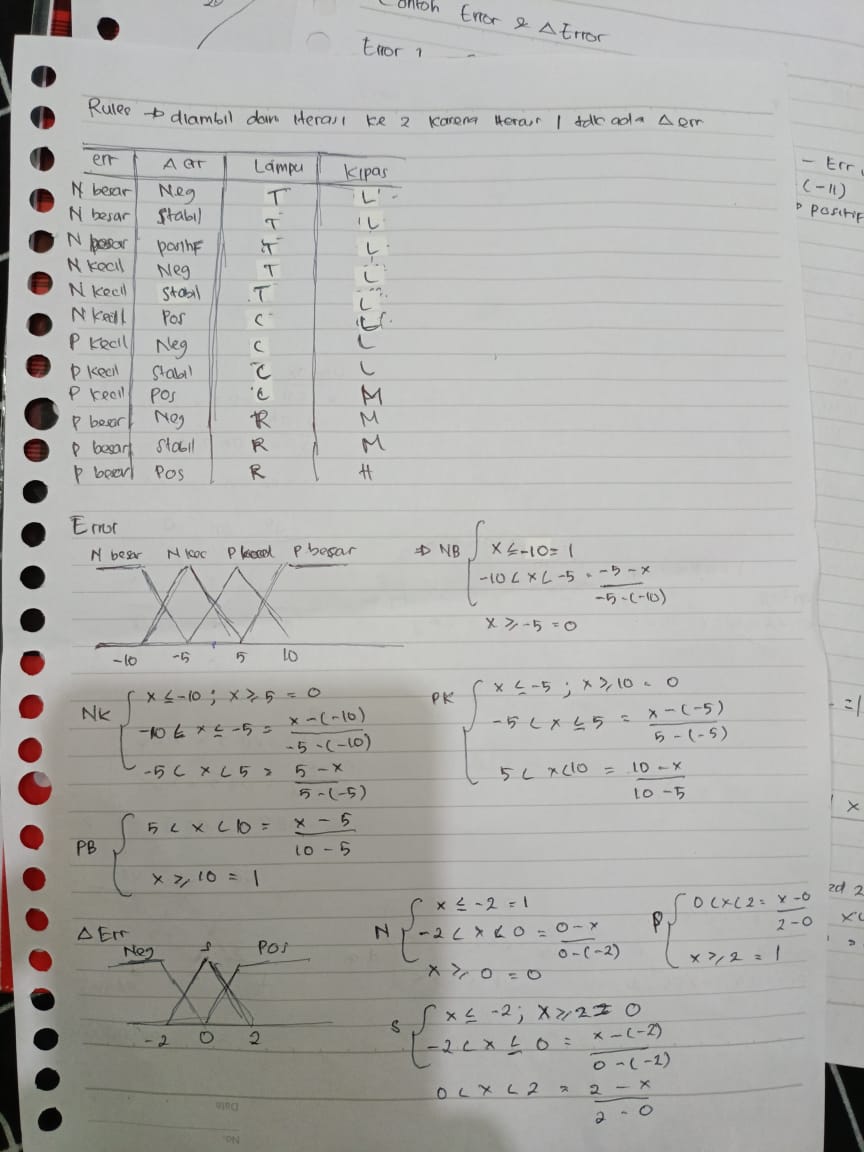 Contoh Error & Δ Error
Error 1
Rules → diambil dari iterasi ke 2 karena iterasi 1 tdk ada Δ err
err Δ err Lampu Kipas
N besar Neg T L
N besar Stabil T L
N besar positif T L
N kecil Neg T L
N kecil Stabil T L
N kecil Pos C L
P kecil Neg C L
P kecil Stabil C L
P kecil Pos C M
P besar Neg R M
P besar Stabil R M
P besar Pos R H
- Err
(-11)
positif
Error
N besar N kec P kecil P besar
-10 -5 5 10
⇒ NB { x ≤ -10 = 1
-10 < x < -5 = (-5 - x) / (-5 - (-10))
x ≥ -5 = 0
NK { x ≤ -10 ; x ≥ 5 = 0
-10 ≤ x ≤ -5 = (x - (-10)) / (-5 - (-10))
-5 < x < 5 = (5 - x) / (5 - (-5))
PK { x ≤ -5 ; x ≥ 10 = 0
-5 < x ≤ 5 = (x - (-5)) / (5 - (-5))
5 < x < 10 = (10 - x) / (10 - 5)
= 1
PB { 5 < x < 10 = (x - 5) / (10 - 5)
x ≥ 10 = 1
Δ Err
Neg S Pos
-2 0 2
N { x ≤ -2 = 1
-2 < x < 0 = (0 - x) / (0 - (-2))
x ≥ 0 = 0
P { 0 < x < 2 = (x - 0) / (2 - 0)
x ≥ 2 = 1
S { x ≤ -2 ; x ≥ 2 = 0
-2 < x ≤ 0 = (x - (-2)) / (0 - (-2))
0 < x < 2 = (2 - x) / (2 - 0)
Date
No.